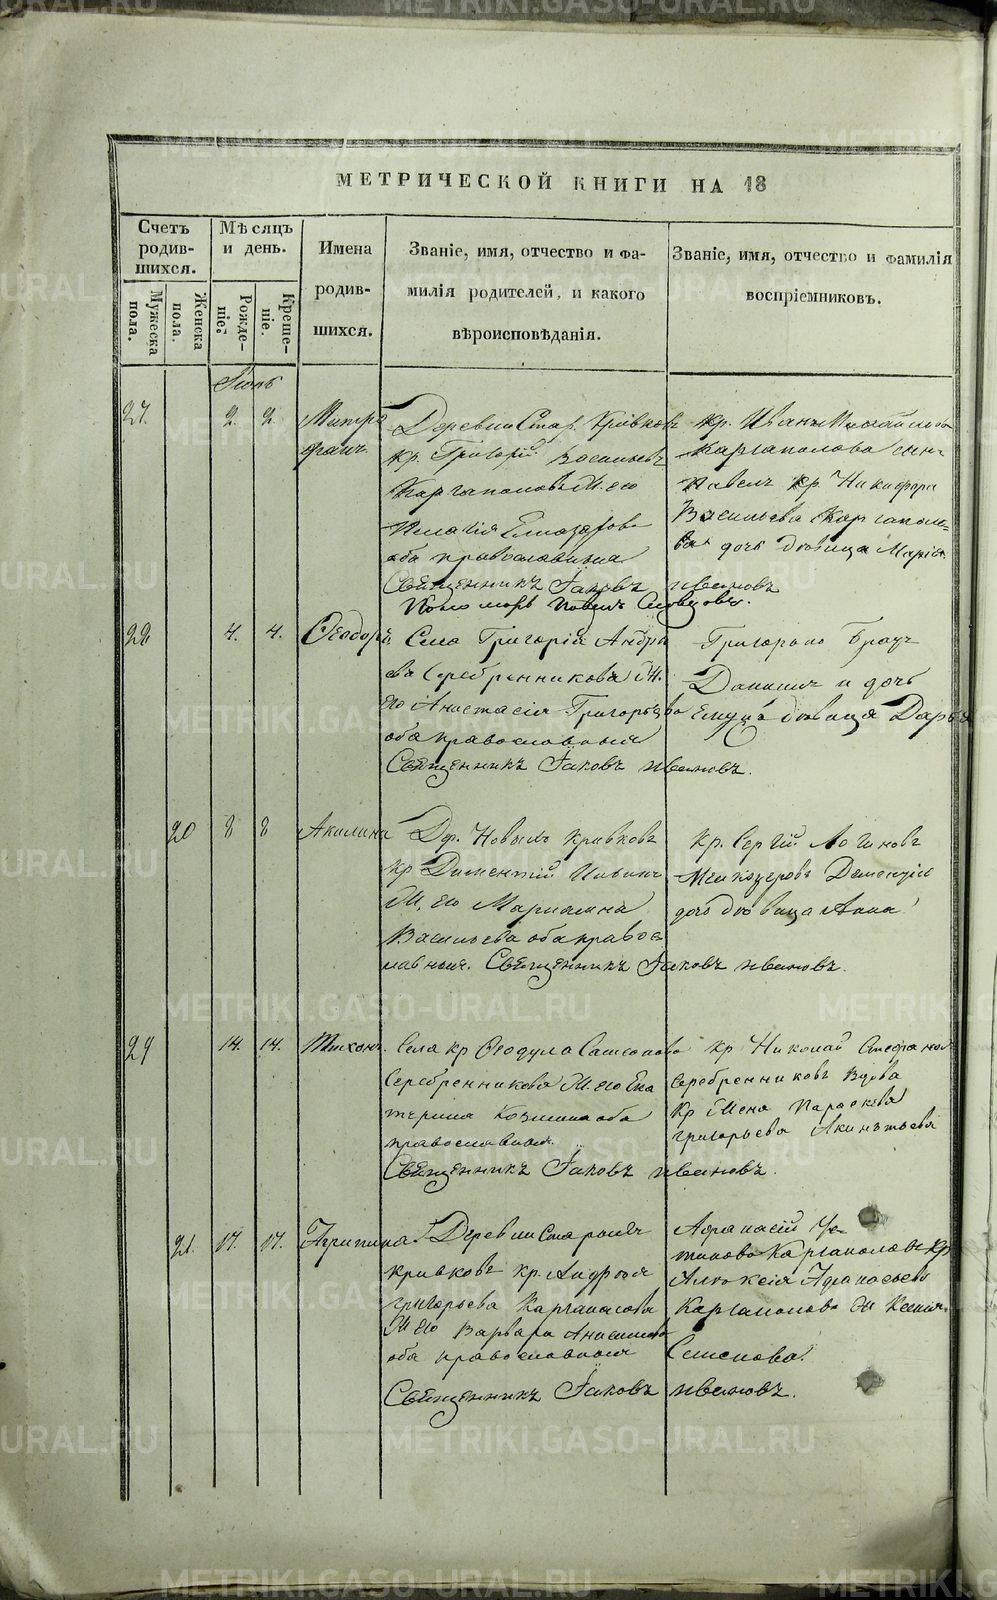 МЕТРИЧЕСКОЙ КНИГИ НА 18
Счетъ родив-шихся.
Мужеска пола.
Женска пола.
Мѣсяцъ и день.
Рожде-ніе.
Креще-ніе.
Имена родив-шихся.
Званіе, имя, отчество и фа-
милія родителей, и какого
вѣроисповѣданія.
Званіе, имя, отчество и фамилія
воспріемниковъ.
2. 2. Митро
фанъ
Деревни Стар. Кривков
кр. Григорій Васильевъ
Каргаполовъ Ж. его
Пелагія Елиазарова
оба православныя
Священникъ Іаковъ Ивановъ
Пономарь Павелъ
кр. Иванъ Михайлова
Каргаполова сынъ
Павелъ кр. Никифора
Васильева Каргаполо-
ва дочь дѣвица Марія
22 4. 4. Ѳеодоръ
Села Григорій Андре
евъ Серебренниковъ Ж.
его Анастасія Григорьева
оба православныя
Священникъ Іаковъ Ивановъ.
Григорьево братъ
Даниилъ и дочь
дѣвица Дарья
20 8 8 Акилина
Др. Новыхъ Кривковъ
кр Диментій
Ж. его Маріамна
Васильева оба правос
лавныя. Священникъ Іаковъ Ивановъ.
кр. Сергій Логиновъ
Дементія
дочь дѣвица Анна
14. 14. Тихонъ.
Села кр Ѳеодула Самсонова
Серебренникова Ж. его Ека
терина Козмина оба
православныя.
Священникъ Іаковъ Ивановъ.
кр Николай Стефанов
Серебренниковъ Вдова
кр Жена Параскева
Григорьева Акинѳьева
21. 17. 17. Агрипина
Деревни Старыхъ
Кривковъ кр. Андрея
Григорьева Каргаполова
Ж его Варвара Анисимова
оба православныя
Священникъ Іаковъ Ивановъ.
Аѳанасій Ус-
тиновъ Каргаполовъ кр
Алексія Аѳанасьева
Каргаполова Ж Ксенія
Семенова.